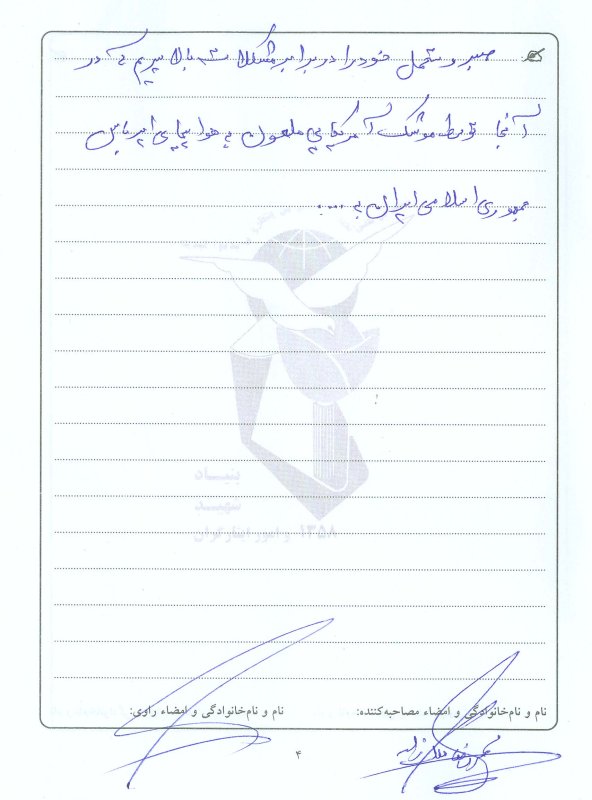 صبر و تحمل خود را در برابر مشکلات بالا ببریم که در
آنجا توسط موشک آمریکایی ملعون به هواپیمای ایرباس
جمهوری اسلامی ایران به ....
بنیاد
شهید
و امور ایثارگران ۱۳۵۸
نام و نام‌خانوادگی و امضاء مصاحبه‌کننده: نام و نام‌خانوادگی و امضاء راوی:
۴